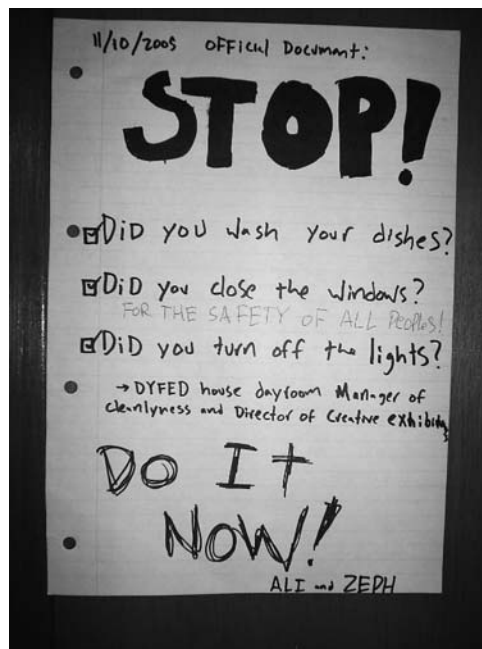 11/10/2005 OFFiciAl Document:
STOP!
DiD you wash your dishes?
DiD you close the windows?
FOR THE SAFETY OF ALL PEOPLES!
DiD you turn off the lights?
→ DYFED house dayroom Manager of
cleanlyness and Director of Creative exhibitions
DO It
NOW!
ALI and ZEPH